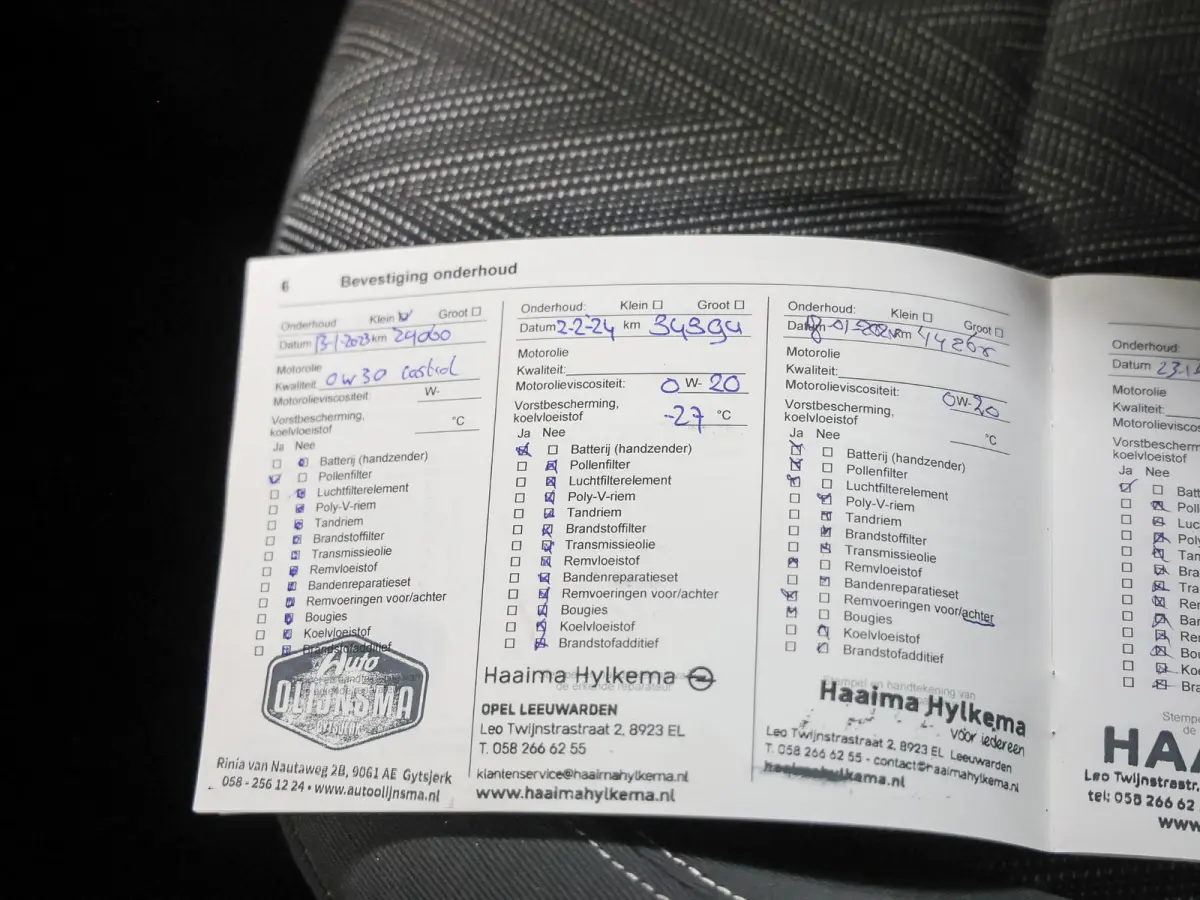 6 Bevestiging onderhoud
Onderhoud Klein Groot
Datum 13-1-2023 km 29060
Motorolie
Kwaliteit 0W30 Castrol
Motorolieviscositeit: W-
Vorstbescherming,
koelvloeistof °C
Ja Nee
Batterij (handzender)
Pollenfilter
Luchtfilterelement
Poly-V-riem
Tandriem
Brandstoffilter
Transmissieolie
Remvloeistof
Bandenreparatieset
Remvoeringen voor/achter
Bougies
Koelvloeistof
Brandstofadditief
Auto
OLIJNSMA
Rinia van Nautaweg 2B, 9061 AE Gytsjerk
058 - 256 12 24 • www.autoolijnsma.nl
Onderhoud: Klein Groot
Datum 2-2-24 km 34394
Motorolie
Kwaliteit:
Motorolieviscositeit: 0 W- 20
Vorstbescherming,
koelvloeistof -27 °C
Ja Nee
Batterij (handzender)
Pollenfilter
Luchtfilterelement
Poly-V-riem
Tandriem
Brandstoffilter
Transmissieolie
Remvloeistof
Bandenreparatieset
Remvoeringen voor/achter
Bougies
Koelvloeistof
Brandstofadditief
Haaima Hylkema
de erkende reparateur
OPEL LEEUWARDEN
Leo Twijnstraat 2, 8923 EL
T. 058 266 62 55
klantenservice@haaimahylkema.nl
www.haaimahylkema.nl
Onderhoud: Klein Groot
Datum km
Motorolie
Kwaliteit:
Motorolieviscositeit: 0W-20
Vorstbescherming,
koelvloeistof °C
Ja Nee
Batterij (handzender)
Pollenfilter
Luchtfilterelement
Poly-V-riem
Tandriem
Brandstoffilter
Transmissieolie
Remvloeistof
Bandenreparatieset
Remvoeringen voor/achter
Bougies
Koelvloeistof
Brandstofadditief
Stempel en handtekening van
Haaima Hylkema
vóór iedereen
Leo Twijnstraat 2, 8923 EL Leeuwarden
T. 058 266 62 55 - contact@haaimahylkema.nl
haaimahylkema.nl
Onderhoud:
Datum
Motorolie
Kwaliteit:
Motorolieviscos
Vorstbescherming
koelvloeistof
Ja Nee
Batt
Poll
Luc
Poly
Tan
Bra
Tra
Rer
Bar
Re
Bou
Ko
Bra
Stempe
de
HA
Leo Twijnstrastr.
tel: 058 266 62
www.